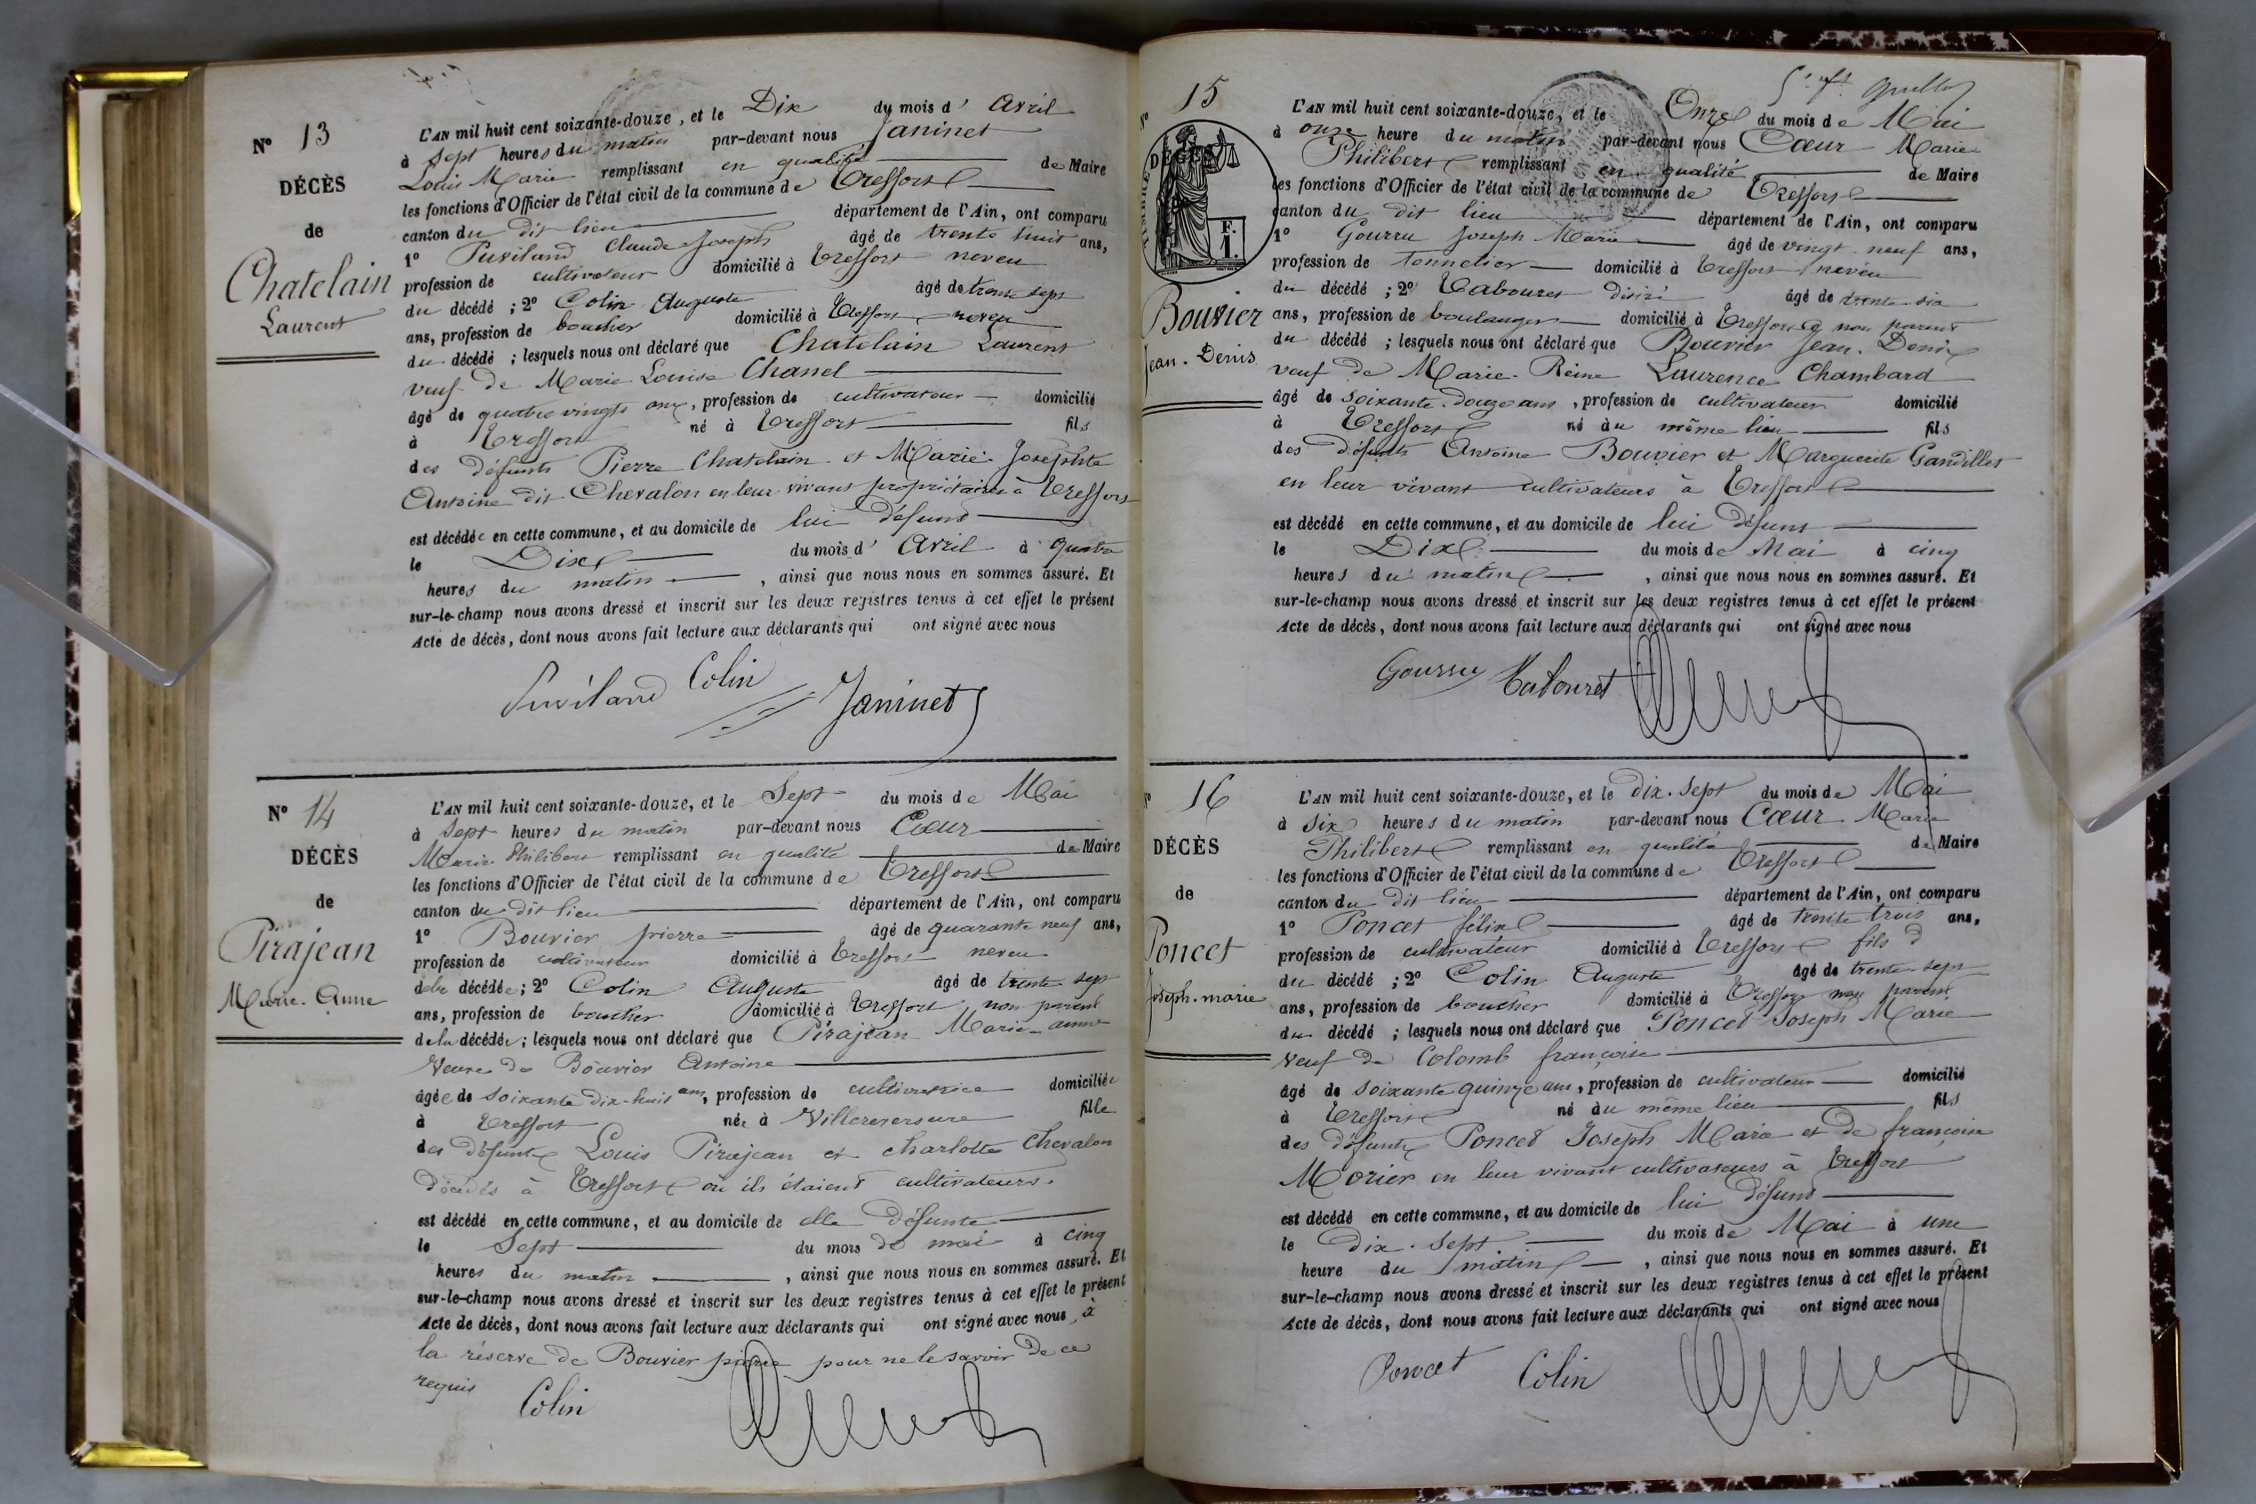 Nº 13
DÉCÈS
de
Chatelain
Laurent
L'AN mil huit cent soixante-douze, et le Dix du mois d' Avril
à sept heures du matin par-devant nous Janinet
Louis Marie remplissant en qualité de Maire
les fonctions d'Officier de l'état civil de la commune de Treffort
canton du dit lieu département de l'Ain, ont comparu
1º Puviland Claude Joseph âgé de trente huit ans,
profession de cultivateur domicilié à Treffort neveu
du décédé ; 2º Colin Auguste âgé de trente sept
ans, profession de boucher domicilié à Treffort neveu
du décédé ; lesquels nous ont déclaré que Chatelain Laurent
veuf de Marie Louise Chanel
âgé de quatre vingts onze, profession de cultivateur domicilié
à Treffort né à Treffort fils
des défunts Pierre Chatelain et Marie Josephte
Antoine dit Chevalon en leur vivant propriétaires à Treffort
est décédé en cette commune, et au domicile de lui défunt
le Dix du mois d' Avril à quatre
heures du matin , ainsi que nous nous en sommes assuré. Et
sur-le-champ nous avons dressé et inscrit sur les deux registres tenus à cet effet le présent
Acte de décès, dont nous avons fait lecture aux déclarants qui ont signé avec nous
Puviland Colin Janinet
Nº 14
DÉCÈS
de
Pirajean
Marie-Anne
L'AN mil huit cent soixante-douze, et le Sept du mois de Mai
à sept heures du matin par-devant nous Cœur
Marie Philibert remplissant en qualité de Maire
les fonctions d'Officier de l'état civil de la commune de Treffort
canton du dit lieu département de l'Ain, ont comparu
1º Bouvier pierre âgé de quarante neuf ans,
profession de cultivateur domicilié à Treffort neveu
de la décédée ; 2º Colin Auguste âgé de trente sept
ans, profession de boucher domicilié à Treffort, non parent
de la décédée ; lesquels nous ont déclaré que Pirajean Marie-anne
Veuve de Bouvier Antoine
âgée de soixante dix-huit ans, profession de cultivatrice domiciliée
à Treffort née à Villereversure fille
des défunts Louis Pirajean et charlotte Chevalon
décédés à Treffort où ils étaient cultivateurs.
est décédé en cette commune, et au domicile de elle défunte
le Sept du mois de mai à cinq
heures du matin , ainsi que nous nous en sommes assuré. Et
sur-le-champ nous avons dressé et inscrit sur les deux registres tenus à cet effet le présent
Acte de décès, dont nous avons fait lecture aux déclarants qui ont signé avec nous, à
la réserve de Bouvier pierre pour ne le savoir de ce
requis
Colin
Nº 15
TIMBRE DÉCÈS
F.
1.
Bouvier
Jean-Denis
L'AN mil huit cent soixante-douze, et le Onze du mois de Mai
à onze heure du matin par-devant nous Cœur Marie
Philibert remplissant en qualité de Maire
les fonctions d'Officier de l'état civil de la commune de Treffort
canton du dit lieu département de l'Ain, ont comparu
1º Gourru Joseph Marie âgé de vingt-neuf ans,
profession de tonnelier domicilié à Treffort neveu
du décédé ; 2º Tabouret désiré âgé de trente-six
ans, profession de boulanger domicilié à Treffort non parent
du décédé ; lesquels nous ont déclaré que Bouvier Jean-Denis
veuf de Marie-Reine Laurence Chambard
âgé de soixante-douze ans, profession de cultivateur domicilié
à Treffort né au même lieu fils
des défunts Antoine Bouvier et Marguerite Gandillet
en leur vivant cultivateurs à Treffort
est décédé en cette commune, et au domicile de lui défunt
le Dix du mois de Mai à cinq
heures du matin , ainsi que nous nous en sommes assuré. Et
sur-le-champ nous avons dressé et inscrit sur les deux registres tenus à cet effet le présent
Acte de décès, dont nous avons fait lecture aux déclarants qui ont signé avec nous
Gourru Tabouret
Nº 16
DÉCÈS
de
Poncet
Joseph-marie
L'AN mil huit cent soixante-douze, et le dix-sept du mois de Mai
à six heures du matin par-devant nous Cœur Marie
Philibert remplissant en qualité de Maire
les fonctions d'Officier de l'état civil de la commune de Treffort
canton du dit lieu département de l'Ain, ont comparu
1º Poncet félix âgé de trente trois ans,
profession de cultivateur domicilié à Treffort fils
du décédé ; 2º Colin Auguste âgé de trente-sept
ans, profession de boucher domicilié à Treffort non parent
du décédé ; lesquels nous ont déclaré que Poncet Joseph Marie
veuf de Colomb françoise
âgé de soixante quinze ans, profession de cultivateur domicilié
à Treffort né au même lieu fils
des défunts Poncet Joseph Marie et de françoise
Morier en leur vivant cultivateurs à Treffort
est décédé en cette commune, et au domicile de lui défunt
le dix-sept du mois de Mai à une
heure du matin , ainsi que nous nous en sommes assuré. Et
sur-le-champ nous avons dressé et inscrit sur les deux registres tenus à cet effet le présent
Acte de décès, dont nous avons fait lecture aux déclarants qui ont signé avec nous
Poncet Colin